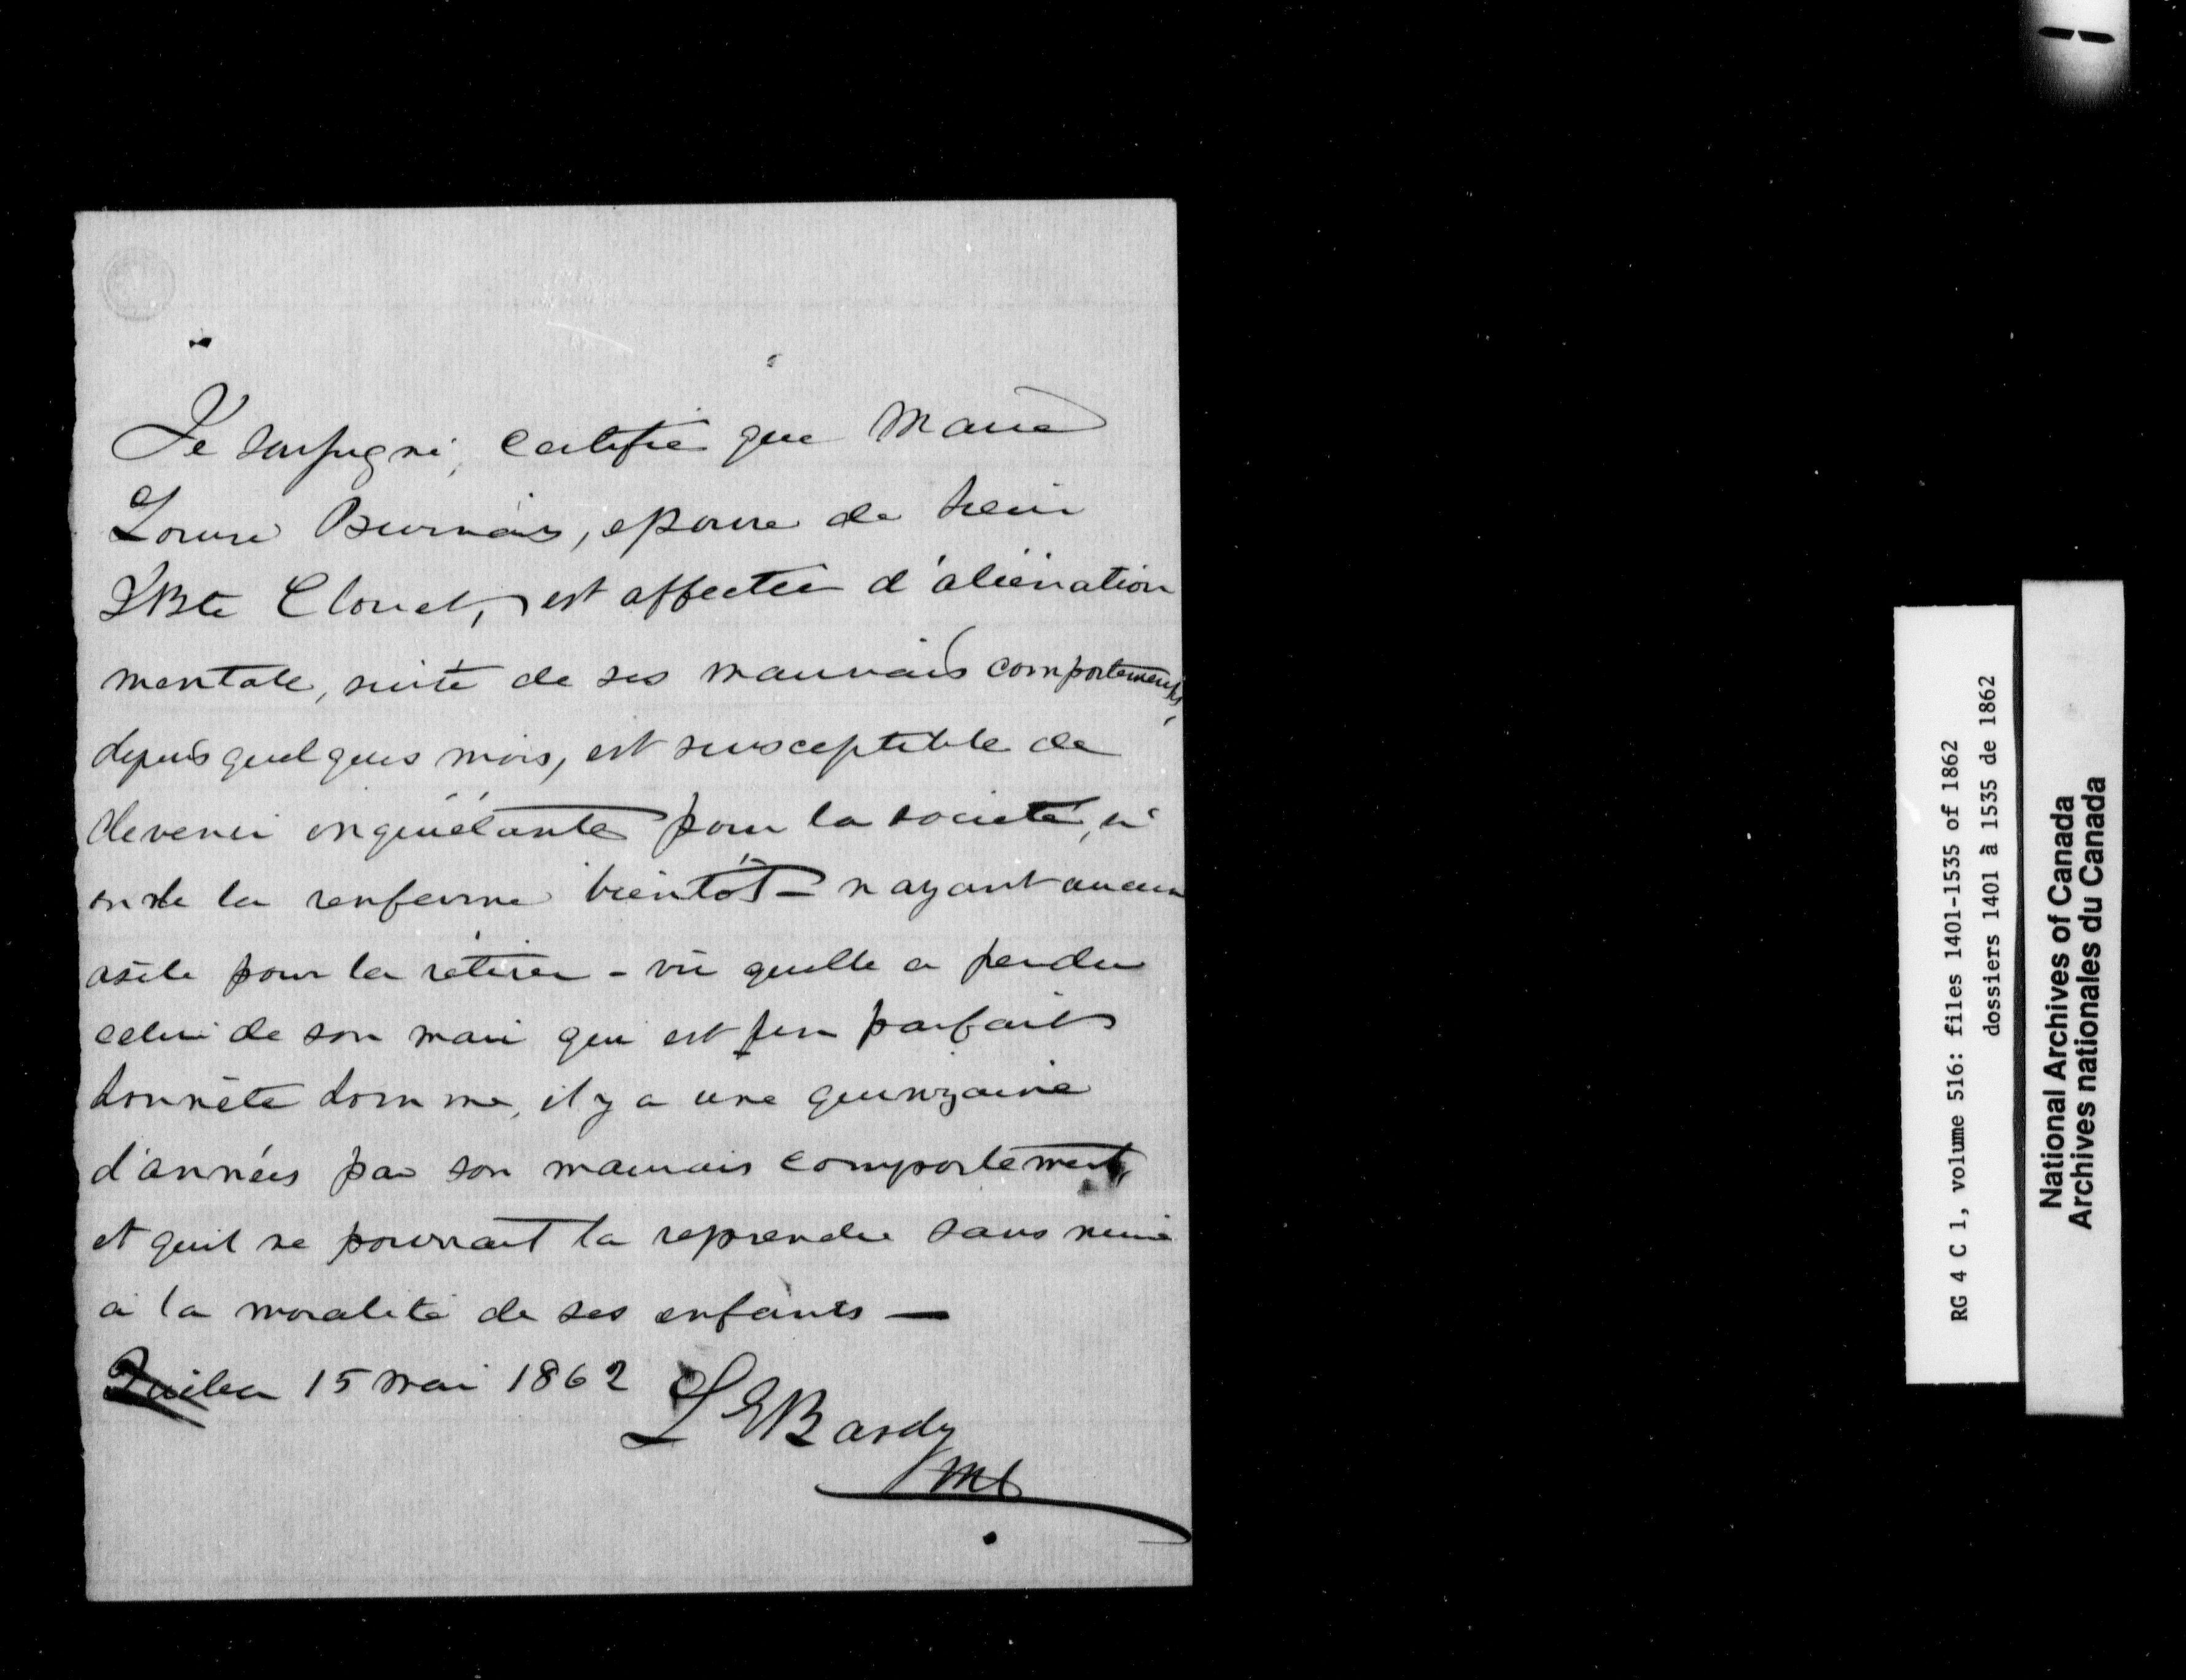 Je soussigné, certifie que Marie
Louise Burnais, epouse de Sieur
JBte Clouet, est affectée d'aliénation
mentale, suite de ses mauvais comportements,
depuis quelques mois, est susceptible de
devenir inquiétante pour la societé, si
on ne la renferme bientôt - n'ayant aucun
asile pour la retirer - vû quelle a perdu
celui de son mari qui est un parfait
honnête homme, il y a une quinzaine
d'années par son mauvais comportement,
et quil ne pourrait la reprendre sans nuire
à la moralité de ses enfants —
Québec 15 mai 1862
Bardy
RG 4 C 1, volume 516: files 1401-1535 of 1862
dossiers 1401 à 1535 de 1862
National Archives of Canada
Archives nationales du Canada